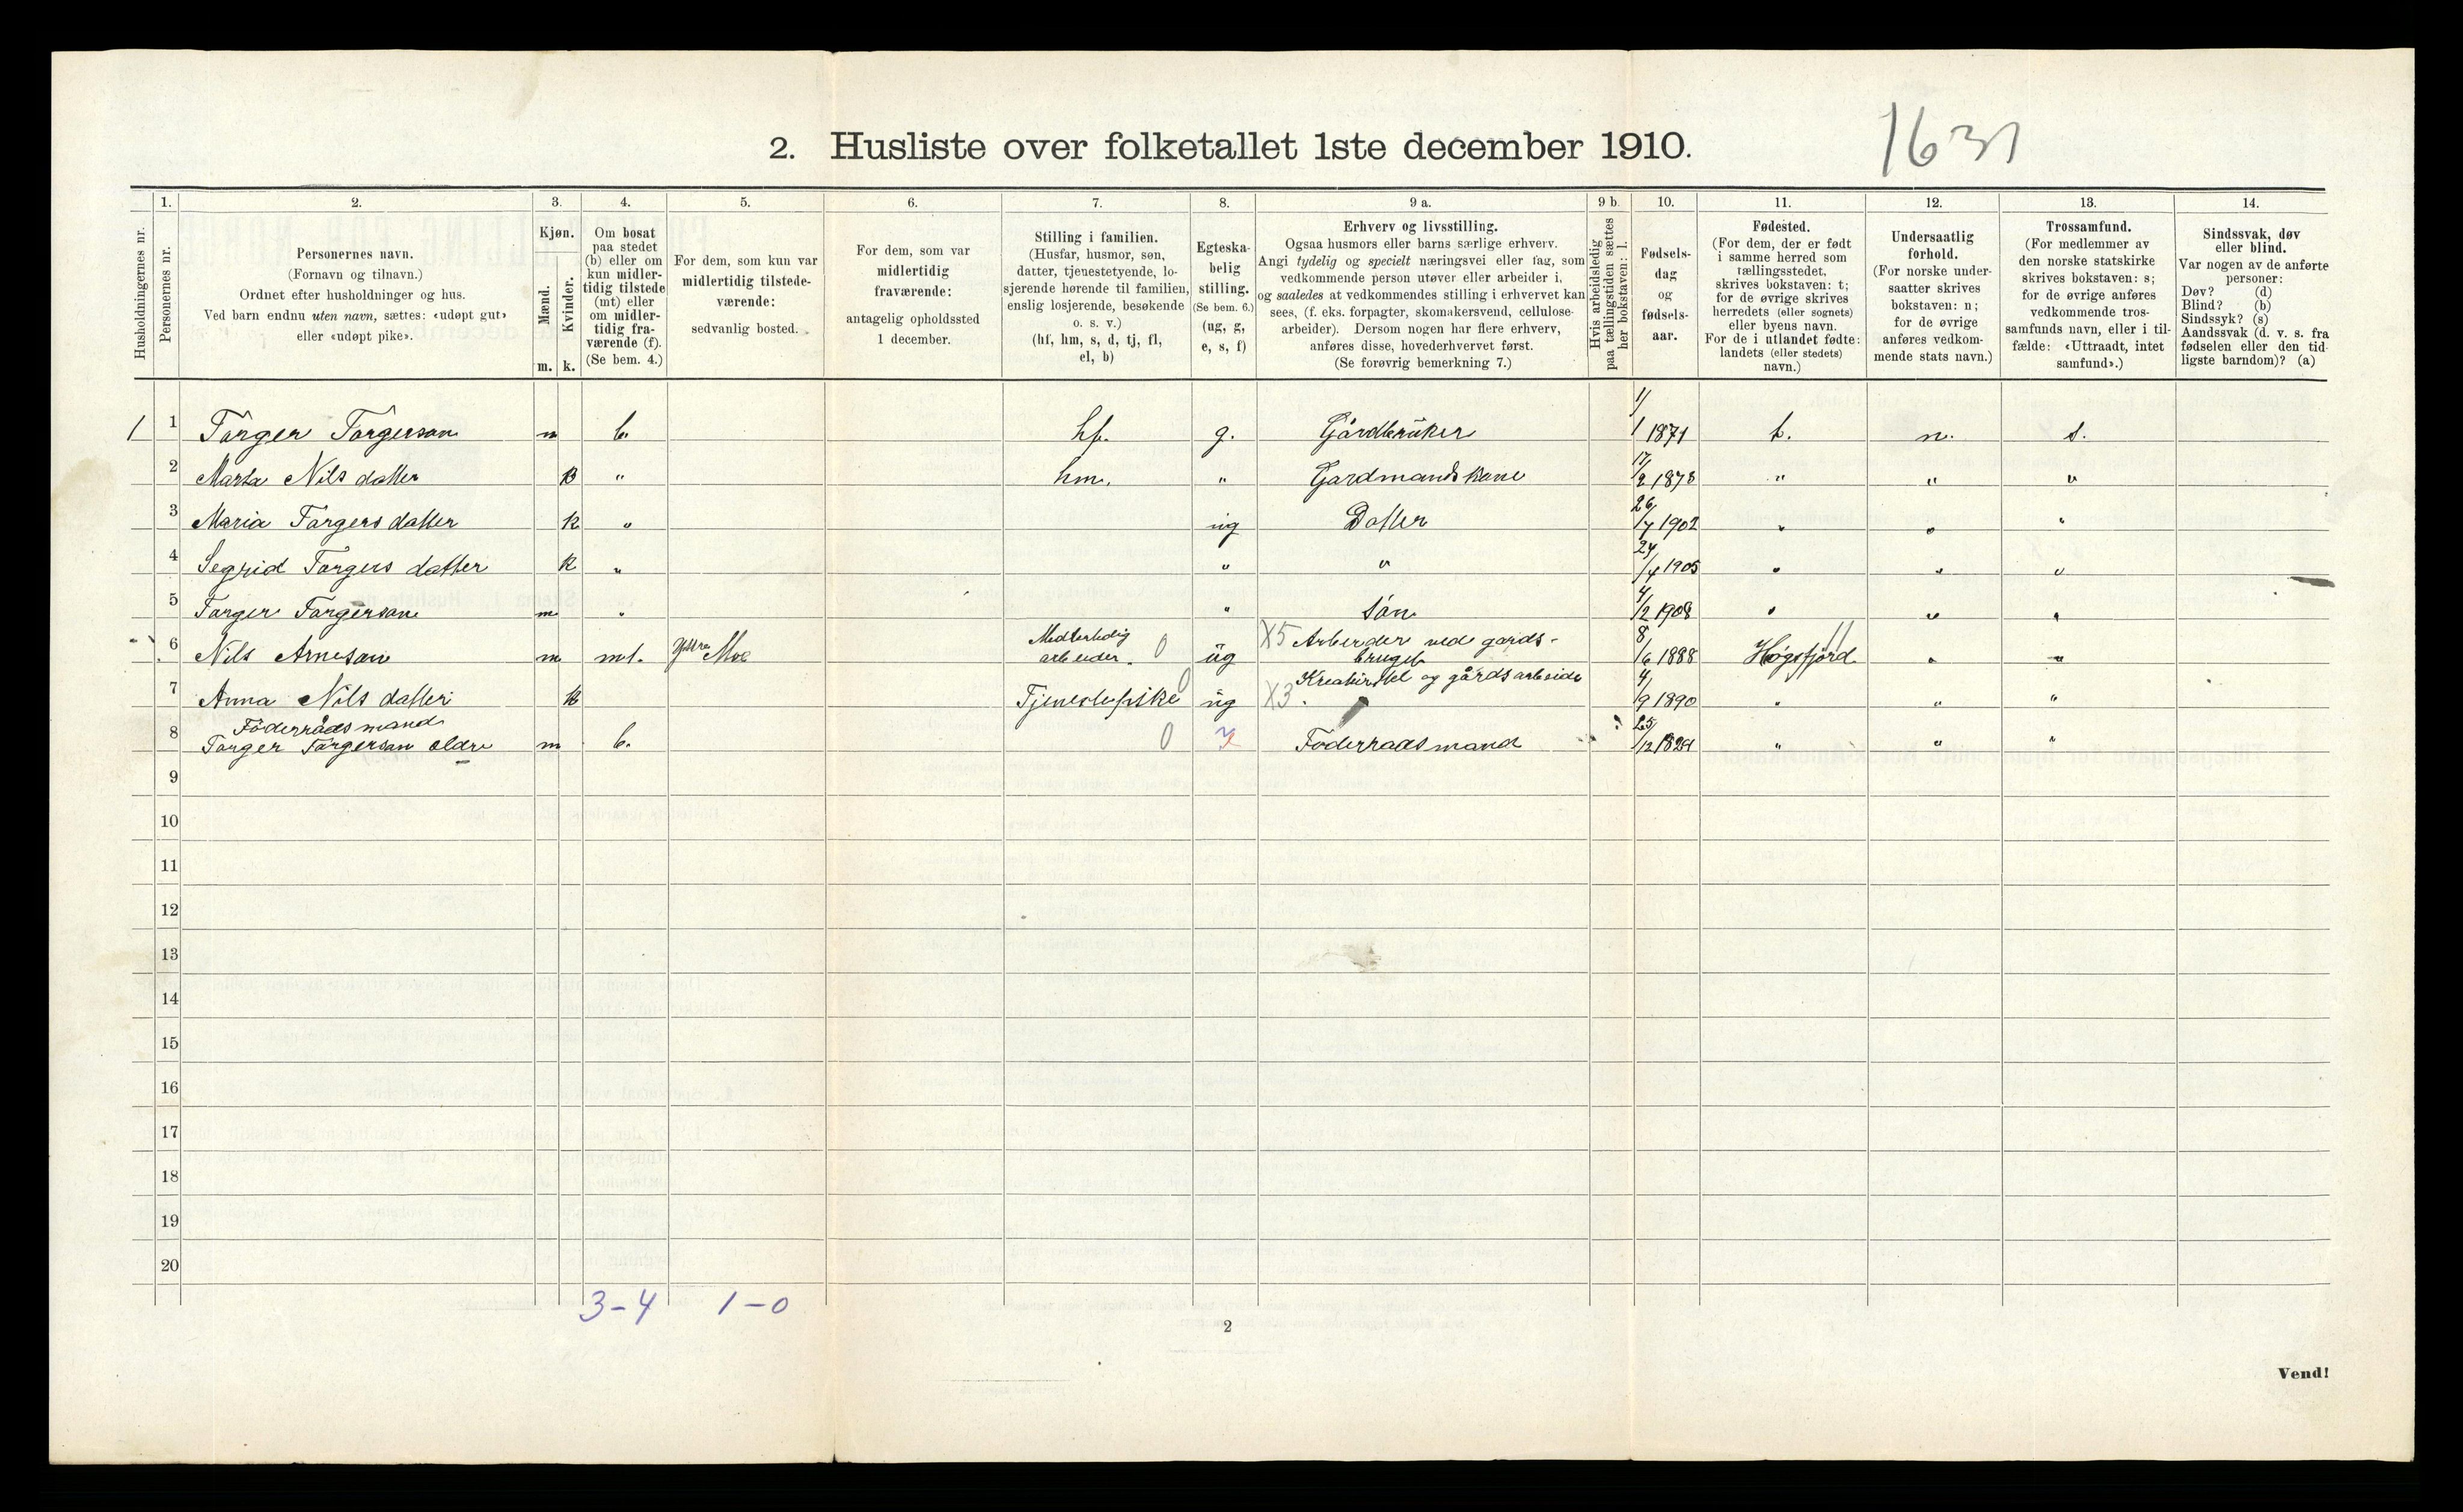 2. Husliste over folketallet 1ste december 1910.
1631
1. 2. 3. 4. 5. 6. 7. 8. 9 a. 9 b. 10. 11. 12. 13. 14.
Husholdningernes nr.
Personernes nr.
Personernes navn.
(Fornavn og tilnavn.)
Ordnet efter husholdninger og hus.
Ved barn endnu uten navn, sættes: «udøpt gut»
eller «udøpt pike».
Kjøn.
Mænd.
Kvinder.
m. k.
Om bosat
paa stedet
(b) eller om
kun midler-
tidig tilstede
(mt) eller
om midler-
tidig fra-
værende (f).
(Se bem. 4.)
For dem, som kun var
midlertidig tilstede-
værende:
sedvanlig bosted.
For dem, som var
midlertidig
fraværende:
antagelig opholdssted
1 december.
Stilling i familien.
(Husfar, husmor, søn,
datter, tjenestetyende, lo-
sjerende hørende til familien,
enslig losjerende, besøkende
o. s. v.)
(hf, hm, s, d, tj, fl,
el, b)
Egteska-
belig
stilling.
(Se bem. 6.)
(ug, g,
e, s, f)
Erhverv og livsstilling.
Ogsaa husmors eller barns særlige erhverv.
Angi tydelig og specielt næringsvei eller fag, som
vedkommende person utøver eller arbeider i,
og saaledes at vedkommendes stilling i erhvervet kan
sees, (f. eks. forpagter, skomakersvend, cellulose-
arbeider). Dersom nogen har flere erhverv,
anføres disse, hovederhvervet først.
(Se forøvrig bemerkning 7.)
Hvis arbeidsledig
paa tællingstiden sættes
her bokstaven: l.
Fødsels-
dag
og
fødsels-
aar.
Fødested.
(For dem, der er født
i samme herred som
tællingsstedet,
skrives bokstaven: t;
for de øvrige skrives
herredets (eller sognets)
eller byens navn.
For de i utlandet fødte:
landets (eller stedets)
navn.)
Undersaatlig
forhold.
(For norske under-
saatter skrives
bokstaven: n;
for de øvrige
anføres vedkom-
mende stats navn.)
Trossamfund.
(For medlemmer av
den norske statskirke
skrives bokstaven: s;
for de øvrige anføres
vedkommende tros-
samfunds navn, eller i til-
fælde: «Uttraadt, intet
samfund».)
Sindssvak, døv
eller blind.
Var nogen av de anførte
personer:
Døv? (d)
Blind? (b)
Sindssyk? (s)
Aandssvak (d. v. s. fra
fødselen eller den tid-
ligste barndom)? (a)
1 1 Torger Torgerson m b. hf. g. Gårdbrüker 1/1 1871 t. n. s.
2 Marta Nilsdatter k " hm. " Gardmandskone 17/2 1878 " " "
3 Maria Torgersdatter k " ug Datter 26/7 1902 " " "
4 Segrid Torgersdatter k " " " 24/4 1905 " " "
5 Torger Torgerson m " " Søn 4/12 1908 " " "
6 Nils Arneson m mt. Yttre Moe arbeider. 0 ug X5 Arbeider ved gards-
bruget 8/6 1888 Høgsfjord " "
7 Anna Nilsdatter k Tjenestepike 0 ug X3 Kreaturstel og gårdsarbeide 4/9 1890 " " "
Föderrådsmand
8 Torger Torgerson eldre m b. 0 Föderraadsmand 25/12 1829 " " "
9
10
11
12
13
14
15
16
17
18
19
20
3-4 1-0
2
Vend!